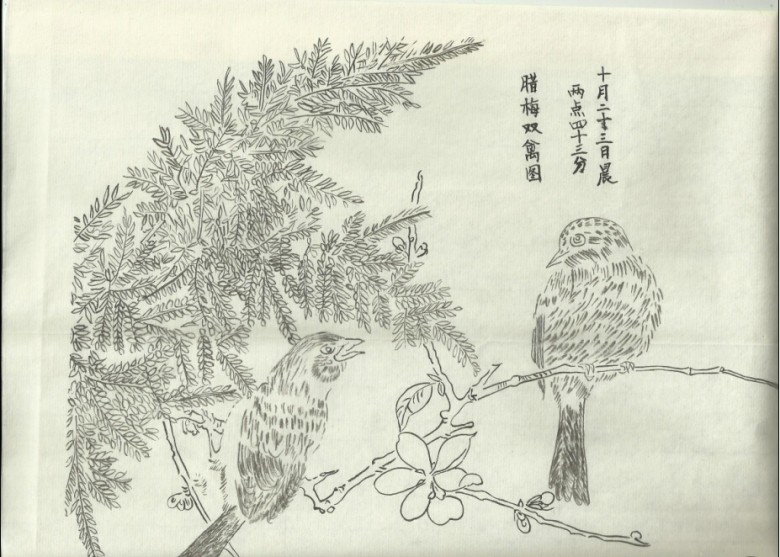 十月二十三日晨
两点四十三分
腊梅双禽图